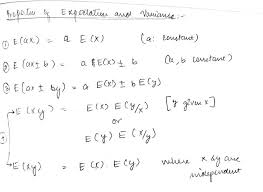 Properties of Expectation and Variance :-
① E(ax) = a E(x) (a: constant)
② E(ax ± b) = a E(x) ± b (a, b constant)
③ E(ax ± by) = a E(x) ± b E(y)
E(xy) = E(x) E(y/x) [y given x]
or
E(y) E(x/y)
E(xy) = E(x) . E(y) where x & y are
independent